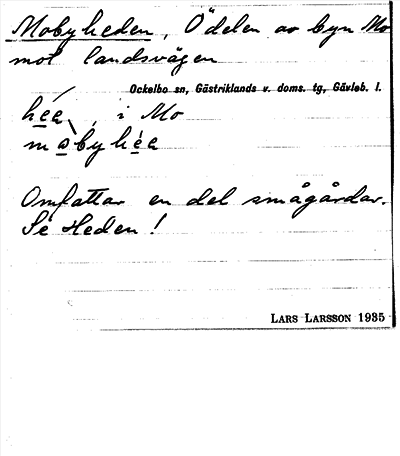 Mobyheden, Ö delen av byn Mo
mot landsvägen
Ockelbo sn, Gästriklands v. doms. tg, Gävleb. l.
hea, i Mo
mobyhea
Omfattar en del smågårdar.
Se Heden!
LARS LARSSON 1935